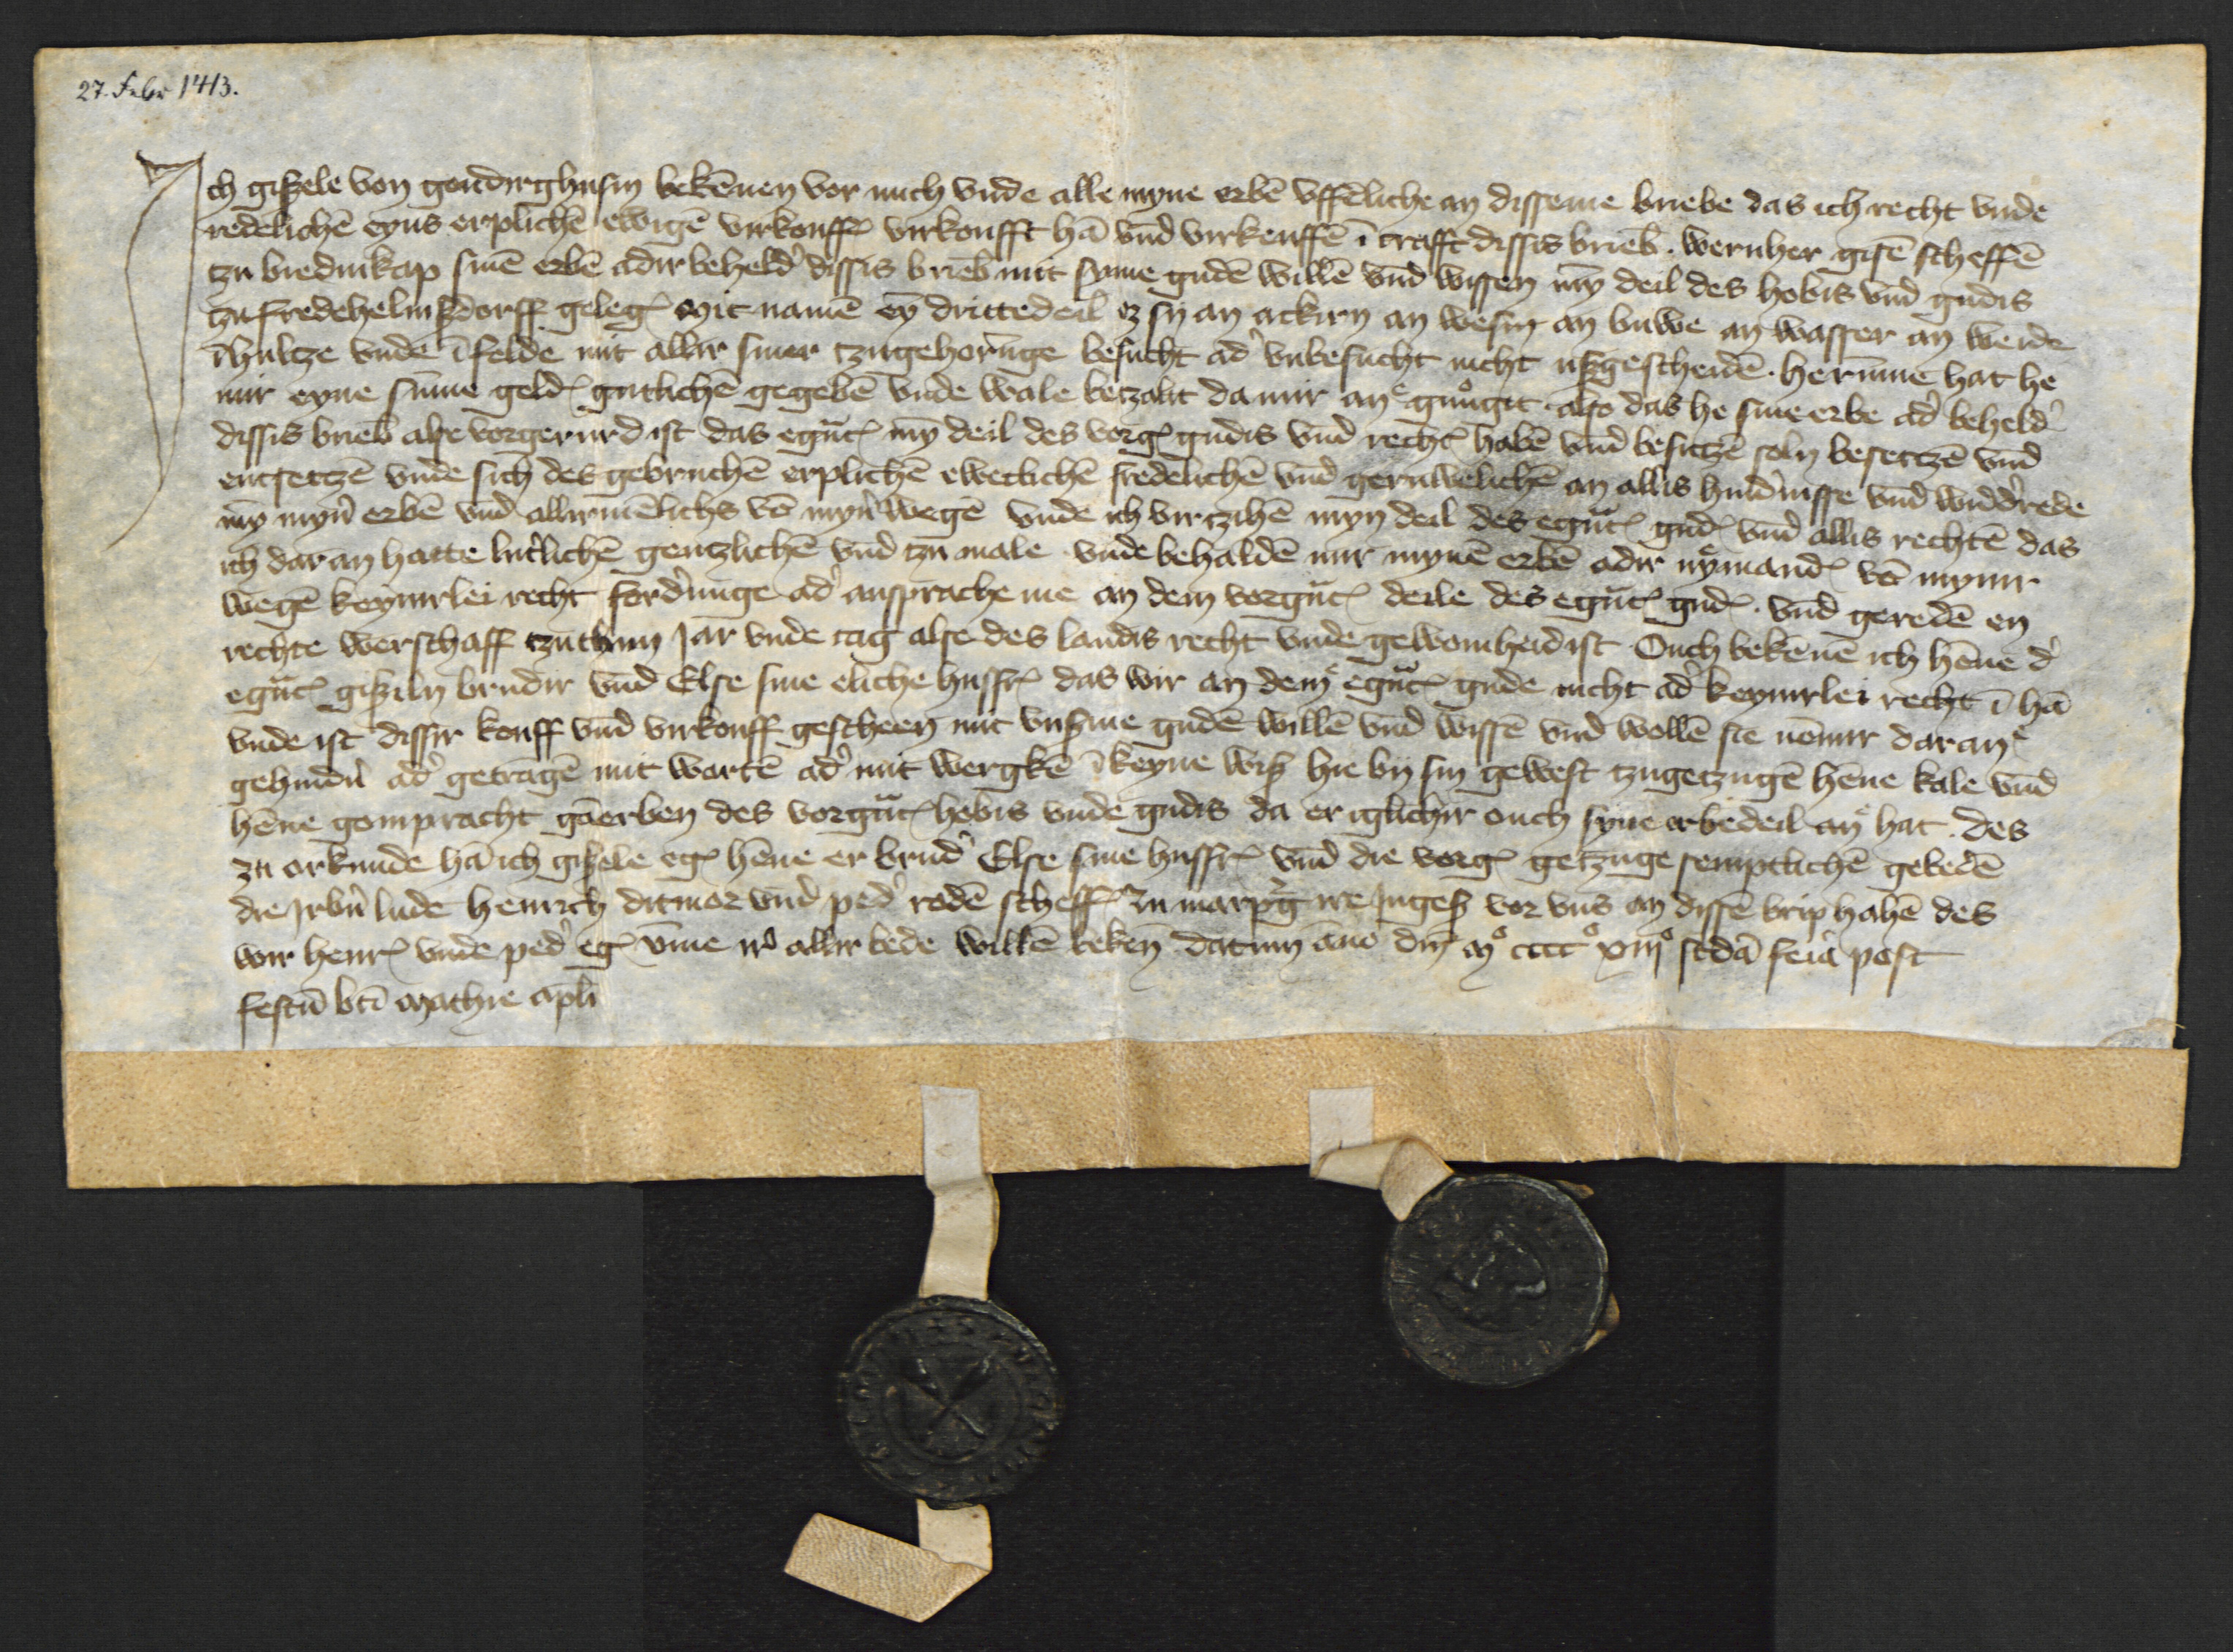 27. Febr 1413.
Ich giszele von gondirghusin bekēnen vor mich vnde alle myne erbē vffēliche an disseme briebe das ich recht vnde
redelichē eyns erplichē ewigē virkouffꝭ virkoufft hā vnd virkeuffē ī crafft dissis briebꝭ. wernher gisē scheffē
tzu biedinkap sinē erbē adir beheldʾ dissis briebꝭ mit syme gudē willē vnd wissen mȳ deil des hobis vnd gudis
tzu fredehelmszdorff gelegꝭ Mit namē eȳ drittedeil iz sy an ackirn an wesin an buwe an wasser an weide
ī hultze vnde ī felde mit allir siner tzugehorūge besucht adʾ vnbesucht nicht uszgescheidē. herūme hat he
mir eyne sūme geldꝭ gutlichē gegebē vnde wale betzalit da mir anͤ gnuͦgit also das he sine erbe adʾ beheldʾ
dissis briebꝭ alse vorgerurd ist das egūtꝭ mȳ deil des vorgꝭ gudis vnd rechtꝭ habē vnd besitzē soln besetzē vnd
entsetzē vnde sich des gebruchē erplichē ewetlichē fredelichē vnd geruwelichē an allis hindʾnisse vnd widdʾrede
mȳ mynʾ erbē vnd allirmēlichs vō mynʾ wegē vnde ich virtzihē myn deil des egūtꝭ gudꝭ vnd allis rechtē das
ich dar an hatte lutʾlichē gentzlichē vnd tzu male. vnde behaldē mir mynē erbē adir nymandꝭ vō mynir
wegē keynirlei recht fordʾunge adʾ ansprache me an dem vorgūtꝭ deile des egūtꝭ gudꝭ. vnd geredē en
rechte werschaff tzu thun Jar vnde tag alse des landis recht vnde gewonheid ist Ouch bekēnē ich hēne dʾ
egūtꝭ gisziln brudir vnd Else sine eliche husfrꝭ das wir an demͤ egūtꝭ gude nicht adʾ keynirlei recht ī hā
vnde ist dissir kouff vnd virkouff gescheen mit vnszme gudē willē vnd wissē vnd wollē sie nōmir dar anͤ
gehindʾn adʾ getragē mit wartē adʾ mit wergkē ī keyne wisz hie by sin gewest tzu getzugē hēne kale vnd
hēne gompracht gāerben des vorgūtꝭ hobis vnde gudis da er iglichir ouch synē erbedeil anͤ hat. des
zu orkunde hā ich giszele egꝭ hēne er brudʾ Else sine husfrꝭ vnd die vorgꝭ getzuge semptlichē gebedē
die Jrbʾn lude henrich ditmar vnd pedʾ rodē scheffꝭ zu marpʾg ire Ingesꝭ vor vns an dissē brip hahē des
wir henrꝭ vnde pedʾ egꝭ vm̄e irʾ allir bede willē bekeñ datum āno dnī mͦ ccccͦ xiijͦ scdā feria post
festū btī mathie apli